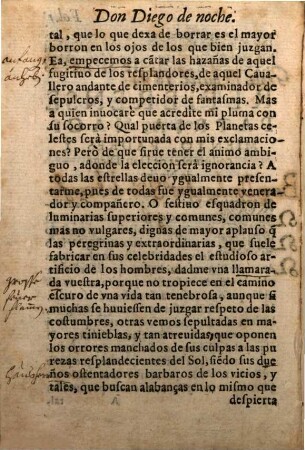 Don Diego de noche.
tal, que lo que dexa de borrar es el mayor
borron en los ojos de los que bien juzgan.
Ea, empecemos a cãtar las hazañas de aquel
fugitiuo de los resplandores, de aquel Caua-
llero andante de cimenterios, examinador de
sepulcros, y competidor de fantasmas. Mas
a quien inuocarè que acredite mi pluma con
su socorro? Qual puerta de los Planetas ce-
lestes serà importunada con mis exclamacio-
nes? Però de que sirue tener el animo ambi-
guo, adonde la eleccion serà ignorancia? A
todas las estrellas deuo ygualmente presen-
tarme, pues de todas fue ygualmente venera-
dor y compañero. O festiuo esquadron de
luminarias superiores y comunes, comunes
mas no vulgares, dignas de mayor aplauso q̃
las peregrinas y extraordinarias, que suelẽ
fabricar en sus celebridades el estudioso ar-
tificio de los hombres, dadme vna llamara-
da vuestra, porque no tropiece en el camino
escuro de vna vida tan tenebrosa, aunque si
muchas se huuiessen de juzgar respeto de las
costumbres, otras vemos sepultadas en ma-
yores tinieblas, y tan atreuidas, que oponen
los orrores manchados de sus culpas a las pu-
rezas resplandecientes del Sol, siẽdo sus due
ños ostentadores barbaros de los vicios, y
tales, que buscan alabanças en lo mismo que
A
despierta